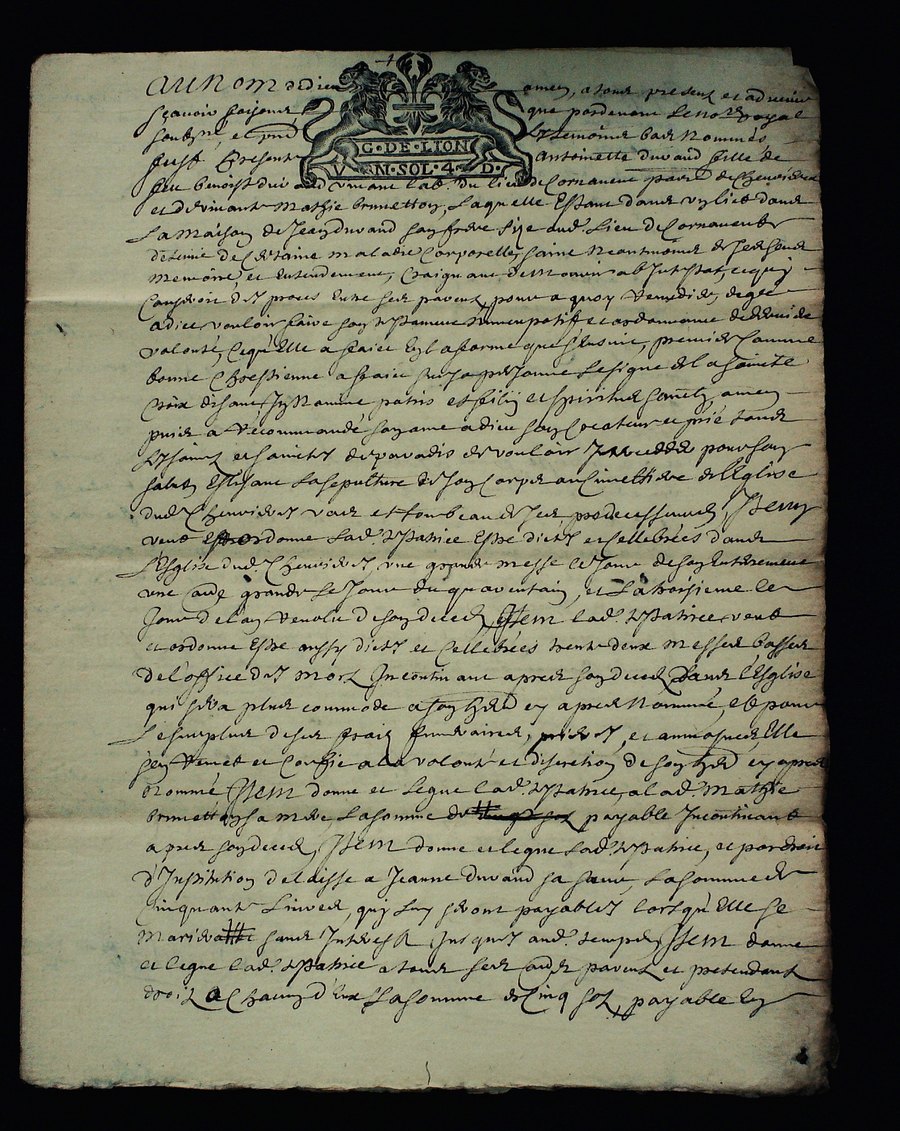 Au Nom de Dieu amen, a tous presens et advenir
sçavoir faisons que pardevant le no.re royal
soubsne, et pnt les temoins bas nommés
G·DE·LION
V N·SOL·4·D·
fust presente Antoinette durand fille de
feu benoist durand vivant lab.r du lieu de Cornavent parr.e de Chenereilles
et de vivante Mathie brunetton, laquelle estant dans un lict dans
la maison de Jean durand son frere size aud. lieu de Cornavent
detenue de certaine maladie corporelle, saine neantmoins de ses sens
memoire, et entendement, craignant de mourir abintestat, ce qui
causeroit des proces entre ses parens, pour a quoy remedier, de gré
a dict vouloir faire son testament nuncupatif et ordonnance de derniere
volonté, ce qu'elle a faict en la forme que s'ensuit, premier comme
bonne Chrestienne a faict sur sa personne le signe de la saincte
Croix disant, In Nomine patris et filii et spiritus sancti, amen
puis a recommandé son ame a dieu son createur et prié tous
les saincts et sainctes de paradis de vouloir interceder pour son
salut, eslisant la sepulture de son corps au cimettiere de l'Eglise
dud. vas et tombeau de ses predecesseurs, Item
veut et ordonne lad. testatrice estre dictes et cellebrées dans
l'Esglise dud. une grande messe le jour de son enterrement
une autre grande le jour du quarentain, et la troisieme le
jour de l'an revolu de son deces, Item lad. testatrice veut
et ordonne estre aussy dictes et cellebrées trente deux messes basses
de l'office des morts Incontinant apres son deces dans l'Esglise
qui sera plus commode a son her. cy apres nommé, et pour
le surplus de ses frais funeraires, prieres, et aumosnes elle
s'en remet et confie a la volonté et discretion de son her. cy apres
nommé Item donne et legue lad. testatrice, a lad. Mathie
brunetton sa mere, la somme de payable Incontinant
apres son deces, Item donne et legue lad. testatrice, et par droit
d'Institution delaisse a Jeanne durand sa sœur, la somme de
Cinquante livres, qui luy seront payables lorsqu'elle se
mariera sans Interest jusques aud. temps, Item donne
et legue lad. testatrice a tous ses autres parens et pretendant
droit a chacun d'eux la somme de cinq sols, payable en